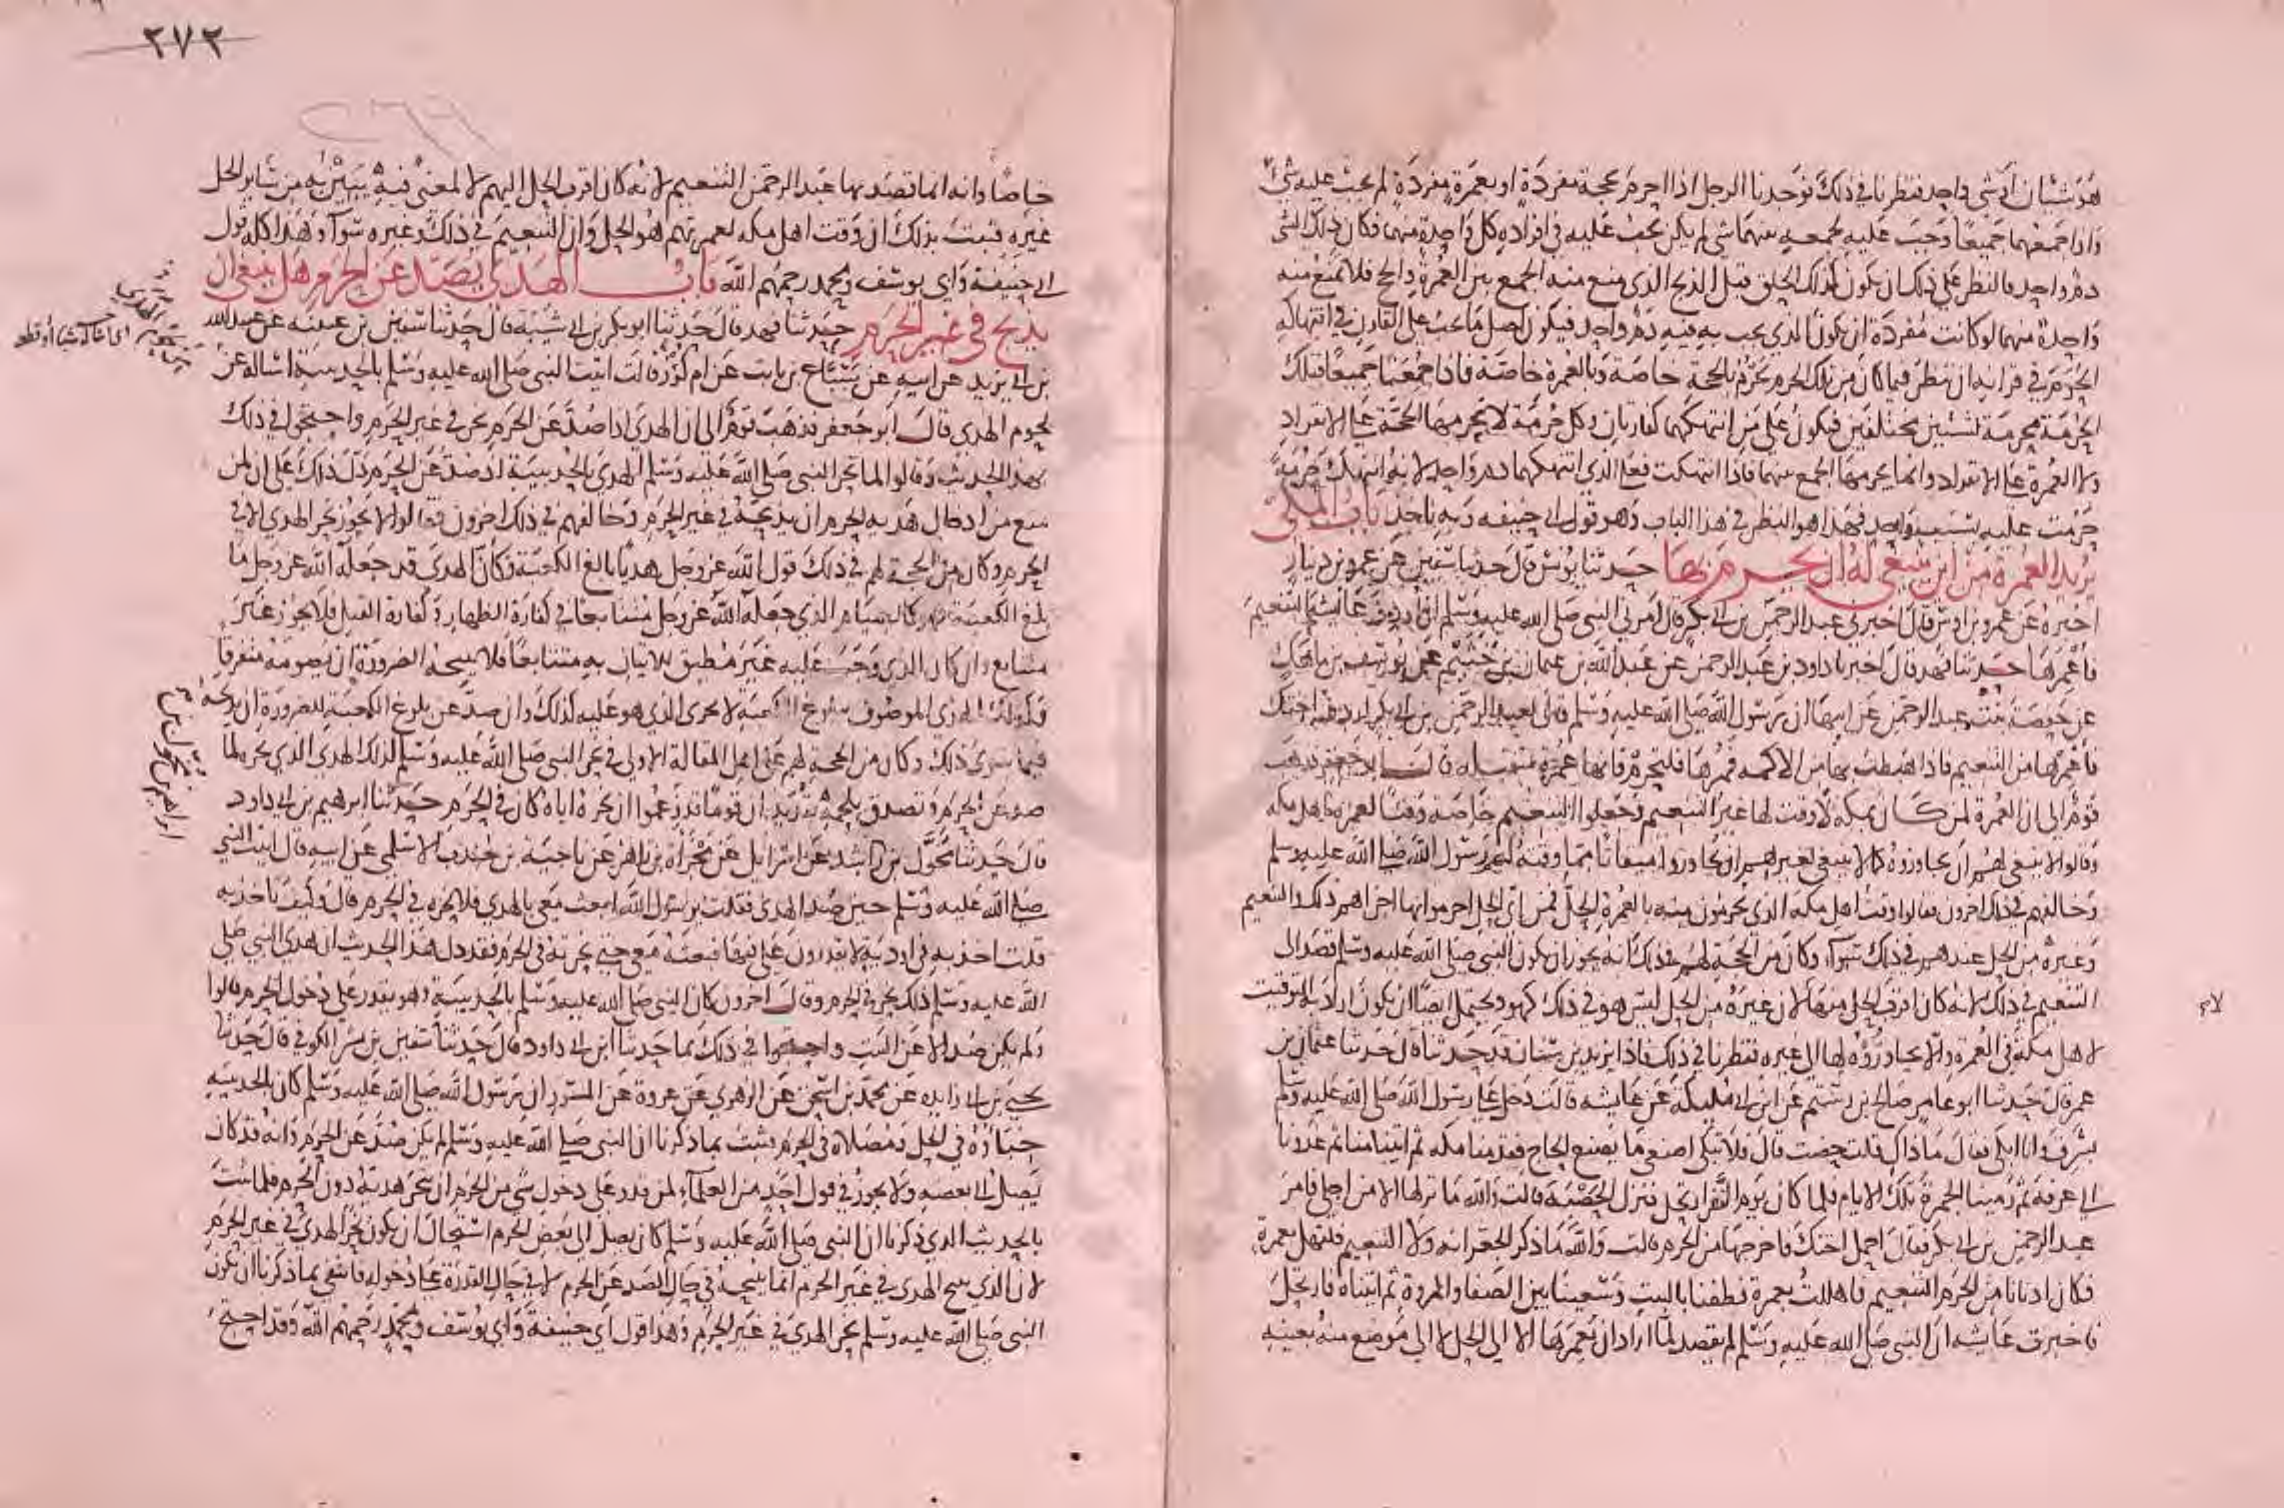 هو شيئان او شي واحد فنظرنا في ذلك فوجدنا الرجل اذا احرم بحجة مفردة او بعمرة مفردة لم يجب عليه شي
واذا جمعهما جميعا وجب عليه لجمعه بينهما شي لم يكن يجب عليه في افراده كل واحدة منهما فكان ذلك الشي
دم واحد فالنظر على ذلك ان يكون كذلك الحلق قبل الذبح الذي منع منه الجمع بين العمرة والحج فلا تمنع منه
واحدة منهما لو كانت مفردة ان يكون الذي يجب به فيه دم واحد فيكون اصل ما يجب على القارن في انتهاكه
الحرم في قرانه ان ننظر فيما كان من تلك الحرم تحرم بالحجة خاصة وبالعمرة خاصة فاذا جمعتا جميعا فتلك
الحرمة محرمة لشيئين مختلفين فيكون على من انتهكهما كفارتان وكل حرمة لا تحرمها الحجة على الانفراد
ولا العمرة على الانفراد وانما يحرمها الجمع بينهما فاذا انتهكت فعلى الذي انتهكهما دم واحد لانه انتهك حرمة
حرمت عليه بسبب واحد فهذا هو النظر في هذا الباب وهو قول ابي حنيفه وبه ناخذ باب المكي
يريد العمرة من اين ينبغي له ان يحرم بها حدثنا يونس قال حدثنا سفين عن عمرو بن دينار
اخبره عن عمرو بن اوس قال اخبرني عبد الرحمن بن ابي بكر قال امرني النبي صلى الله عليه وسلم ان اردف عايشة الى التنعيم
فاعمرها حدثنا فهد قال اخبرنا داود بن عبد الرحمن عن عبد الله بن عثمان بن خثيم عن يوسف بن ماهك
عن حفصة بنت عبد الرحمن عن ابيها ان رسول الله صلى الله عليه وسلم قال لعبد الرحمن بن ابي بكر اردف اختك
فاعمرها من التنعيم فاذا هبطت بها من الاكمه فمرها فلتحرم فانها عمرة متقبلة قال ابو جعفر فذهب
قوم الى ان العمرة لمن كان بمكة لا وقت لها غير التنعيم وجعلوا التنعيم خاصة وقتا لعمرة اهل مكه
وقالوا لا ينبغي لهم ان يجاوزوه كما لا ينبغي لغيرهم ان يجاوزوا ميقاتا مما وقته لهم رسول الله صلى الله عليه وسلم
وخالفهم في ذلك اخرون فقالوا وقت اهل مكة الذي يحرمون منه بالعمرة الحل فمن اي الحل احرموا بها اجزاهم ذلك والتنعيم
وغيره من الحل عندهم في ذلك سوآء وكان من الحجة لهم في ذلك انه يجوز ان يكون النبي صلى الله عليه وسلم قصد الى
التنعيم في ذلك لانه كان اقرب الحل منها لا ن غيره من الحل ليس هو في ذلك كهو ويحتمل ايضا ان يكون اراد به التوقيت
لاهل مكة في العمرة والا يجاوزوه لها الى غيره فنظرنا في ذلك فاذا يزيد بن سنان قد حدثنا قال حدثنا عثمان بن
عمر قال حدثنا ابو عامر صالح بن رستم عن ابن ابي مليكة عن عايشه قالت دخل علي رسول الله صلى الله عليه وسلم
بسرف وانا ابكي فقال ما ذاك قلت حضت قال فلا تبكي اصنعي ما يصنع الحاج فقدمنا مكه ثم اتينا منا ثم غدونا
الى عرفة ثم رمينا الجمرة تلك الايام فلما كان يوم النفر ارتحل فنزل الحصبة قالت والله ما نزلها الا من اجلي فامر
عبد الرحمن بن ابي بكر فقال احمل اختك فاخرجها من الحرم قالت والله ما ذكر الجعرانه ولا التنعيم فلتهل بعمرة
فكان ادنانا من الحرم التنعيم فاهللت بعمرة فطفنا بالبيت وسعينا بين الصفا والمروة ثم اتيناه فارتحل
فاخبرت عايشه ان النبي صلى الله عليه وسلم لم يقصد لما اراد ان يعمرها الا الى الحل لا الى موضع منه بعينه
٢٧٢
خاصا وانه انما قصد بها عبد الرحمن التنعيم لانه كان اقرب الحل اليهم لا لمعنى فيه يبين به من سائر الحل
غيره فثبت بذلك ان وقت اهل مكه لعمرتهم هو الحل وان التنعيم في ذلك وغيره سوآء وهذا كله قول
ابي حنيفة وابي يوسف ومحمد رحمهم الله باب الهدي يصد عن الحرم هل ينبغي ان
يذبح في غير الحرم حدثنا فهد قال حدثنا ابو بكر بن ابي شيبة قال حدثنا سفين بن عيينه عن عبيد الله
بن ابي يزيد عن ابيه عن سباع بن ثابت عن ام كرز قالت اتيت النبي صلى الله عليه وسلم بالحديبية اساله عن
لحوم الهدي قال ابو جعفر فذهب قوم الى ان الهدي اذا صد عن الحرم نحر في غير الحرم واحتجوا في ذلك
بهذا الحديث وقالوا لما نحر النبي صلى الله عليه وسلم الهدي بالحديبية اذ صد عن الحرم دل ذلك على ان لمن
منع من ادخال هديه الحرم ان يذبحه في غير الحرم وخالفهم في ذلك اخرون فقالوا لا يجوز نحر الهدي الا في
الحرم وكان من الحجة لهم في ذلك قول الله عز وجل هديا بالغ الكعبة فكان الهدي قد جعله الله عز وجل ما
بلغ الكعبة فهو كالصيام الذي جعله الله عز وجل متتابعا في كفارة الظهار وكفارة القتل فلا يجوز غير
متتابع وان كان الذي وجب عليه غير مطيق للاتيان به متتابعا فلا تبيحه الضرورة ان يصومه متفرقا
فكذلك الهدي الموصوف ببلوغ الكعبة لا يجزي الذي هو عليه كذلك وان صد عن بلوغ الكعبة للضرورة ان يذبحه
فيما سوى ذلك وكان من الحجة لهم على اهل المقالة الاولى في نحر النبي صلى الله عليه وسلم لذلك الهدي الذي نحره لما
صد عن الحرم وتصدق بلحمه بقديد ان قوما قد زعموا ان نحره اياه كان في الحرم حدثنا ابرهيم بن ابي داود
قال حدثنا مخول بن راشد عن اسرايل عن مجزاة بن زاهر عن ناجية بن جندب الاسلمي عن ابيه قال اتيت النبي
صلى الله عليه وسلم حين صد الهدي فقلت يرسول الله ابعث معي بالهدي فلانحره في الحرم قال وكيف تاخذ به
قلت اخذ به في اودية لا يقدرون علي فيها فبعثه معي حتى نحرته في الحرم فقد دل هذا الحديث ان هدي النبي صلى
الله عليه وسلم ذلك نحر في الحرم وقال اخرون كان النبي صلى الله عليه وسلم بالحديبية وهو يقدر على دخول الحرم قالوا
ولم يكن صد الا عن البيت واحتجوا في ذلك بما حدثنا ابن ابي داود قال حدثنا سفين بن بشر الكوفي قال حدثنا
يحيى بن ابي زايده عن محمد بن اسحق عن الزهري عن عروة عن المسور ان رسول الله صلى الله عليه وسلم كان بالحديبيه
خباؤه في الحل ومصلاه في الحرم فثبت بما ذكرنا ان النبي صلى الله عليه وسلم لم يكن صد عن الحرم وانه قد كان
يصل الى بعضه ولا يجوز في قول احد من العلمآء لمن قدر على دخول شي من الحرم ان ينحر هديه دون الحرم فلما ثبت
بالحديث الذي ذكرنا ان النبي صلى الله عليه وسلم كان يصل الى بعض الحرم استحال ان يكون نحر الهدي في غير الحرم
لان الذي يبيح الهدي في غير الحرم انما يبيحه في حال الصد عن الحرم لا في حال القدرة على دخوله فانتفى بما ذكرنا ان يكون
النبي صلى الله عليه وسلم نحر الهدي في غير الحرم وهذا قول ابي حنيفة وابي يوسف ومحمد رحمهم الله وقد احتج